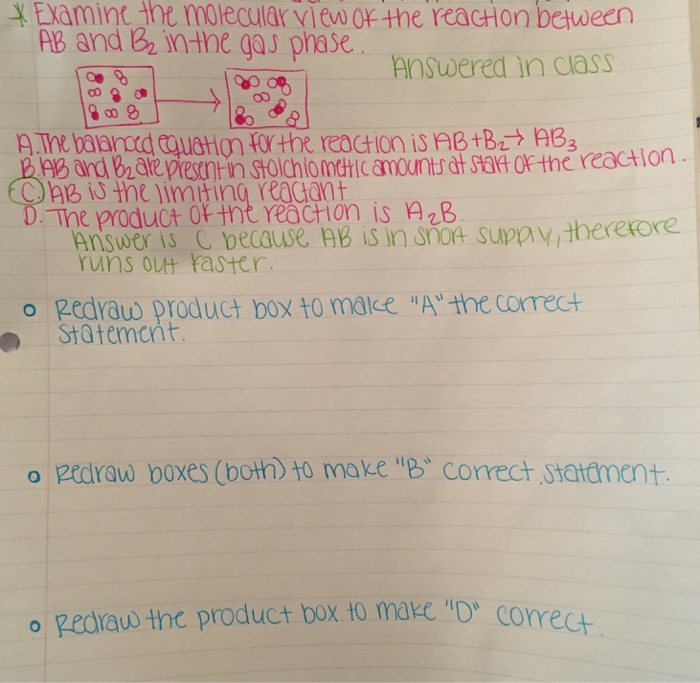 * Examine the molecular view of the reaction between
AB and B₂ in the gas phase.
Answered in class
A. The balanced equation for the reaction is AB + B₂ → AB₃
B. AB and B₂ are present in stoichiometric amounts at start of the reaction.
C. AB is the limiting reactant
D. The product of the reaction is A₂B.
Answer is C because AB is in short supply, therefore
runs out faster.
o Redraw product box to make "A" the correct
statement.
o Redraw boxes (both) to make "B" correct statement.
o Redraw the product box to make "D" correct.